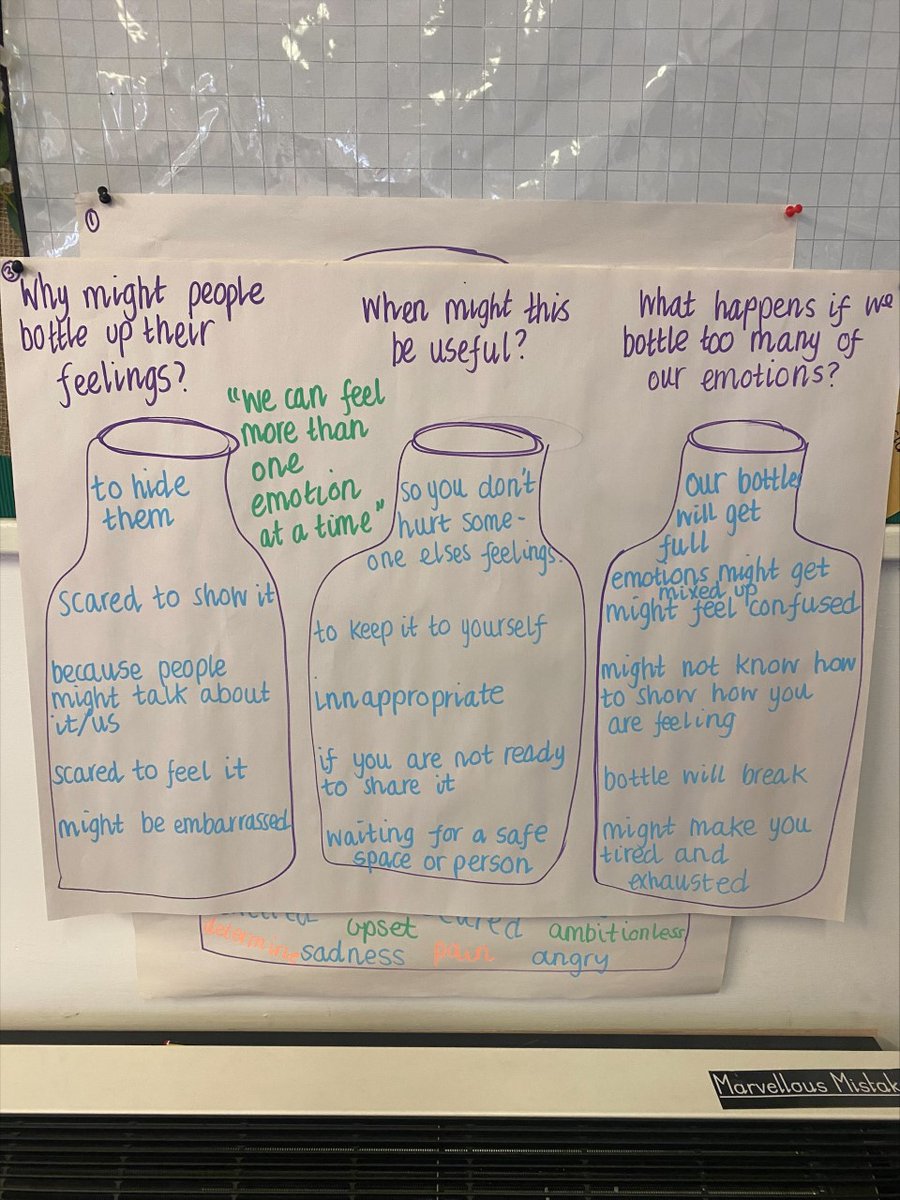 ①
③
Why might people
bottle up their
feelings?
to hide
them
scared to show it
because people
might talk about
it/us
scared to feel it
might be embarrassed
"We can feel
more than
one
emotion
at a time"
When might this
be useful?
so you don't
hurt some-
one elses feelings.
to keep it to yourself
innappropriate
if you are not ready
to share it
waiting for a safe
space or person
What happens if we
bottle too many of
our emotions?
our bottle
will get
full
emotions might get
mixed up
might feel confused
might not know how
to show how you
are feeling
bottle will break
might make you
tired and
exhausted
upset ambitionless
sadness pain angry
Marvellous Mistak